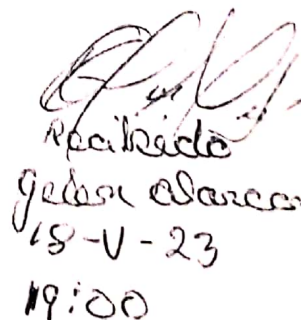 Recibido
Galen Alarcon
18-V-23
19:00